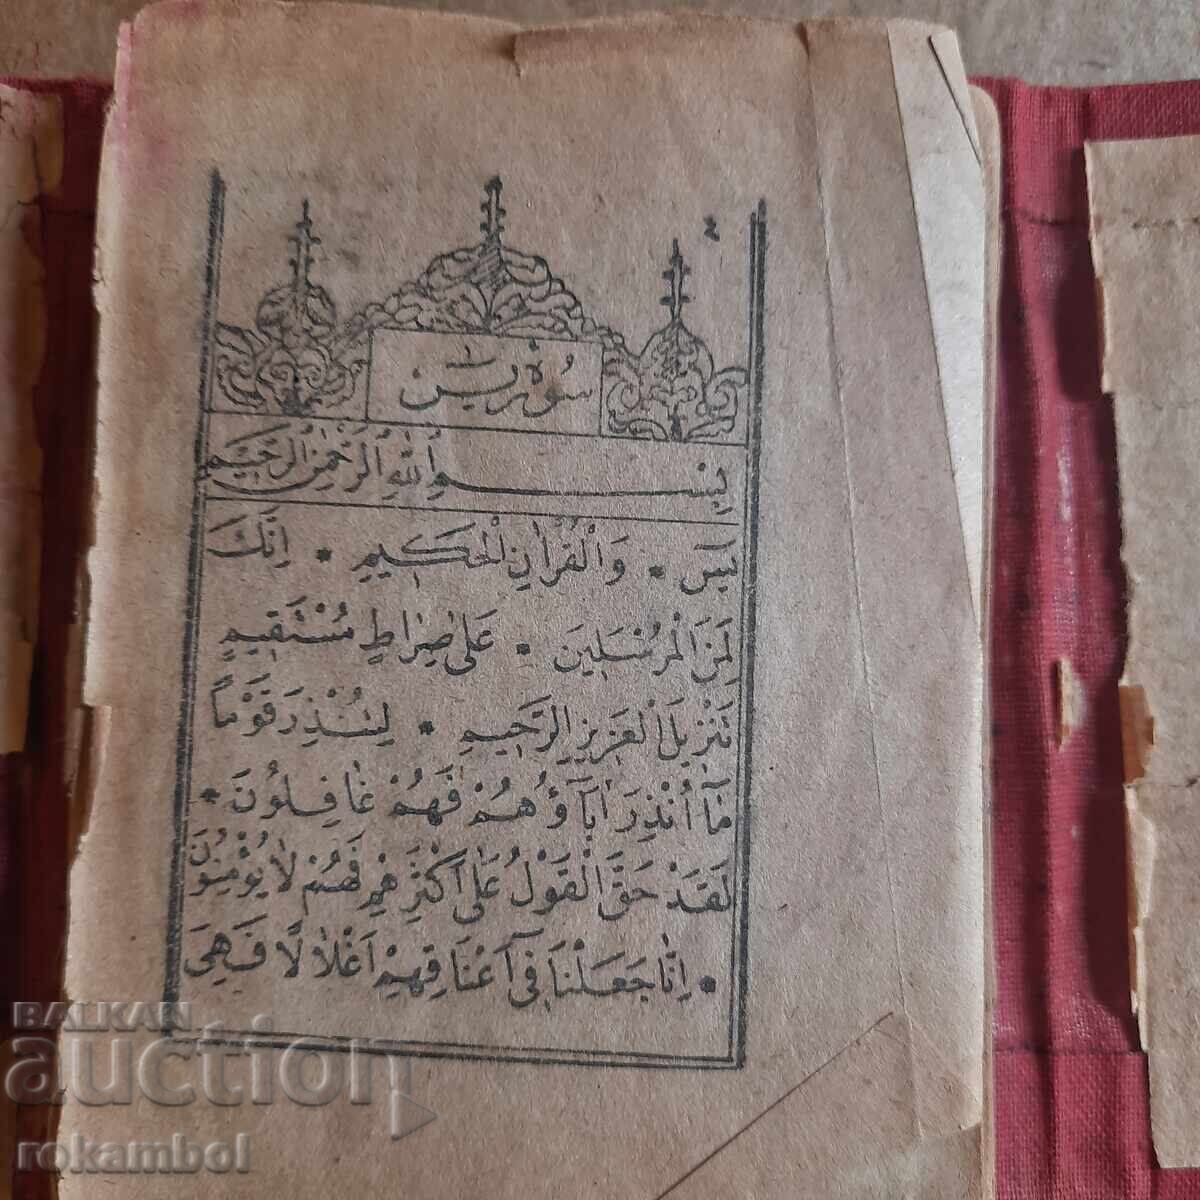 ٤
سُورَةُ يٰسٓ
بِسْمِ اللّٰهِ الرَّحْمٰنِ الرَّحِيمِ
يٰسٓ * وَالْقُرْاٰنِ الْحَكِيمِ * اِنَّكَ
لَمِنَ الْمُرْسَلِينَ * عَلٰى صِرَاطٍ مُسْتَقِيمٍ
تَنْزِيلَ الْعَزِيزِ الرَّحِيمِ * لِتُنْذِرَ قَوْمًا
مَٓا اُنْذِرَ اٰبَٓاؤُهُمْ فَهُمْ غَافِلُونَ *
لَقَدْ حَقَّ الْقَوْلُ عَلٰٓى اَكْثَرِهِمْ فَهُمْ لَا يُؤْمِنُونَ
* اِنَّا جَعَلْنَا فِٓى اَعْنَاقِهِمْ اَغْلَالًا فَهِىَ
BALKAN
auction
rokambol